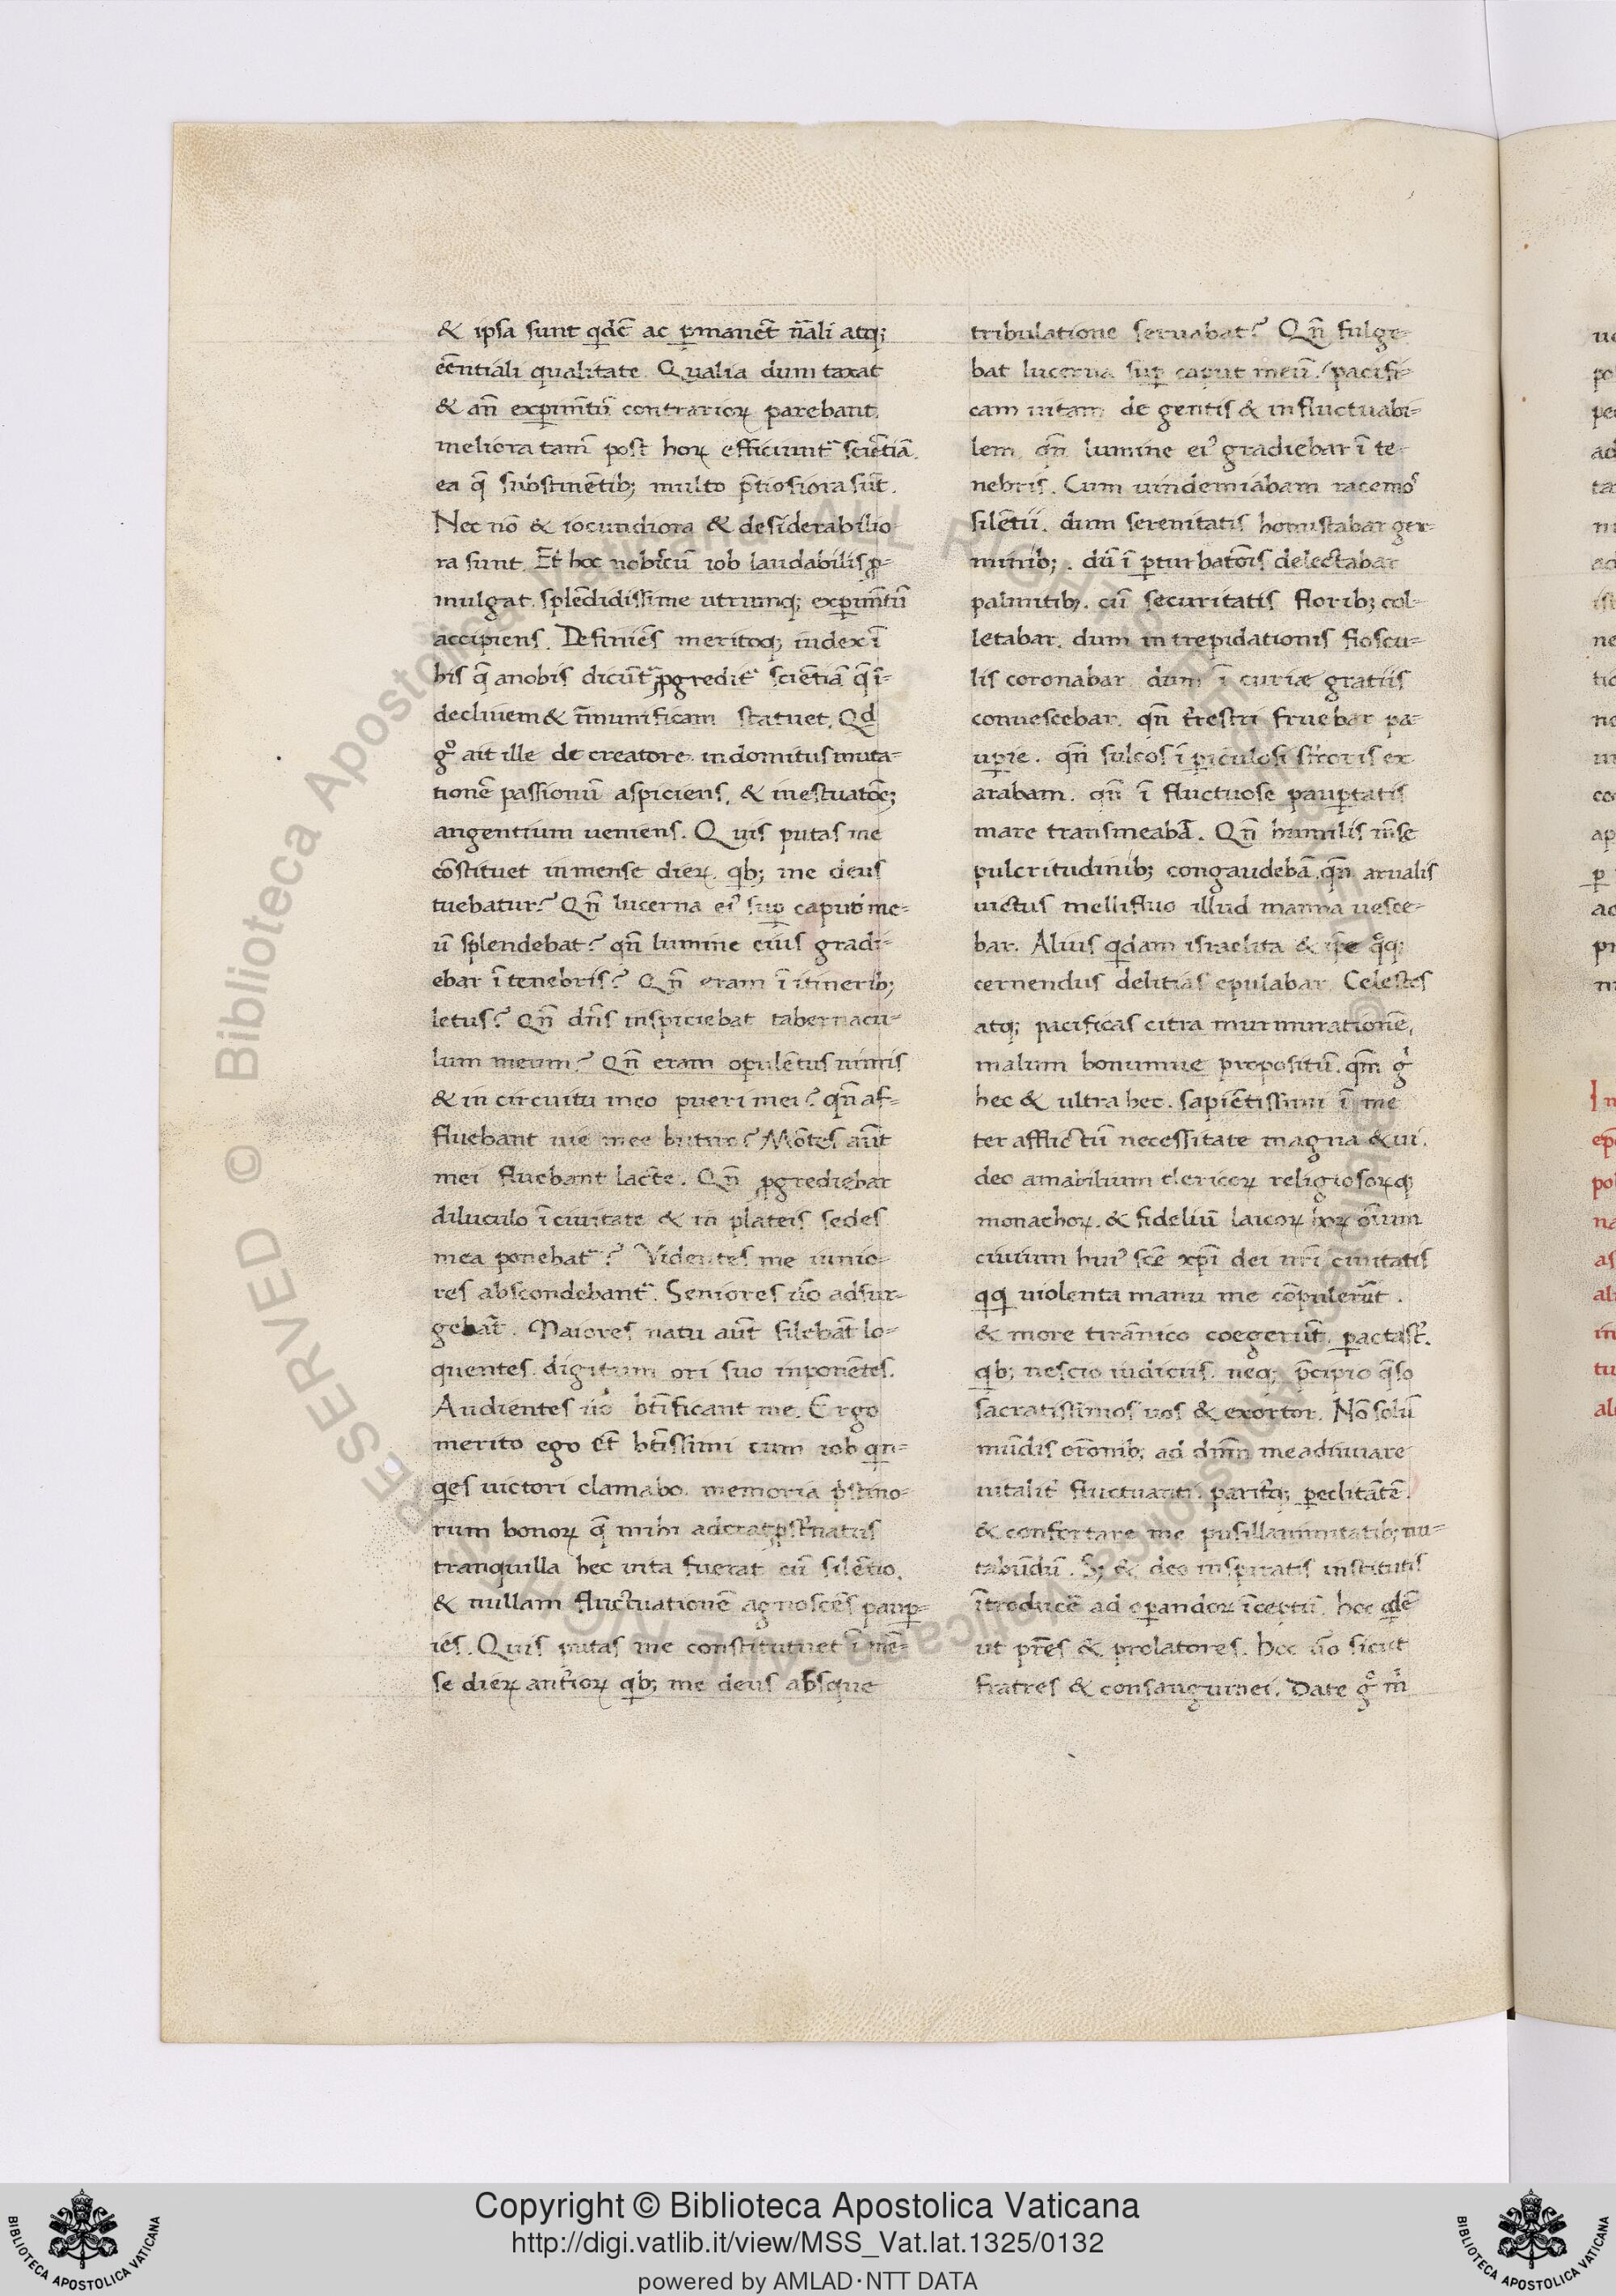 & ipsa sunt qdē ac ꝑmanēt nāli atq;
eēntiali qualitate. Qualia dum taxat
& an̄ exꝑimtū contrarioꝝ parebant.
meliora tam̄ post hoꝝ efficiunt᷑ sciētiā.
ea q̄ substinētib; multo p̄tiosiora sūt.
Nec nō & iocundiora & desiderabilio-
ra sunt. Et hoc nobiscū iob laudabilis ꝓ-
mulgat. splēdidissime utrumq; exꝑimtū
accipiens. Definiēs meritoq; iudex ī
his q̄ anobis dicūt᷑ ꝓgredit᷑ sciētiā q̄ ī-
decliuem & īmunificam statuet. Qd
gͦ ait ille de creatore. indomitus muta-
tionē passionū aspiciens. & inestuatōē;
angentium ueniens. Quis putas me
cōstituet inmense dieꝝ. qb; me deus
tuebatur? Qn̄ lucerna ei᾽ suꝑ caput me-
ū splendebat? qn̄ lumine eius gradi-
ebar ī tenebris? Qn̄ eram ī itinerib;
letus? Qn̄ dn̄s inspiciebat tabernacu-
lum meum? Qn̄ eram opulētus nimis
& in circuitu meo pueri mei? qn̄ af-
fluebant uie mee butiro? Mōtes aūt
mei fluebant lacte. Qn̄ ꝓgrediebar
diluculo ī ciuitate & in plateis sedes
mea ponebat᷑? Videntes me iunio-
res abscondebant᷑. Seniores ūo adsur-
gebāt. Maiores natu aūt silebāt lo-
quentes. digitum ori suo inponētes.
Audientes ūo btīficant me. Ergo
merito ego et btīssimi cum iob qn-
qes uictori clamabo. memoria pstino-
rum bonoꝝ q̄ mihi aderat pst᷑natus
tranquilla hec uita fuerat cū silētio.
& nullam fluctuationē agnoscēs pauꝑ-
iēs. Quis putas me constitutuet ī mē-
se dieꝝ antioꝝ qb; me deus absque
tribulatione seruabat? Qn̄ fulge-
bat lucerna suꝑ caput meū. pacifi-
cam uitam degentis & influctuabi-
lem. qn̄ lumine ei᾽ gradiebar ī te-
nebris. Cum uindemiabam racemos
silētii. dum serenitatis honustabar ger-
minib;. dū ī ꝑturbatōis delectabar
palmitib;. cū securitatis florib; col-
letabar. dum intrepidationis floscu-
lis coronabar. dum ī curiæ gratiis
conuescebar. qn̄ t̄restri fruebar pa-
uꝑie. qn̄ sulcos ī ꝑiculosi st᷑coris ex
arabam. qn̄ ī fluctuose pauꝑtatis
mare transmeabā. Qn̄ humilis mēse
pulcritudinib; congaudebā. qn̄ arualis
uictus mellifluo illud manna uesce-
bar. Alius qdam israelita & ipe qͦq;
cernendus delitias epulabar. Celestes
atq; pacificas citra murmurationē,
malum bonumue propositū. qm̄ gͥ
hec & ultra hec. sapiētissimi ī me
ter afflictū necessitate magna & ui.
deo amabilium clericoꝝ religiosoꝝq;
monachoꝝ. & fideliū laicoꝝ hoꝝ oīum
ciuium hui᾽ scē xp̄i dei nr̄i ciuitatis
qq uiolenta manu me cōpulerūt.
& more tirānico coegerūt. ꝑactast᷑.
qb; nescio iudiciis. neq; p̄cipio q̄so
sacratissimos uos & exortor. Nō solū
mūdis orōnib; ad dm̄m me adiuuare
uitalit᷑ fluctuanti. paritq; ꝑeclitātē.
& confortare me pusillanimitatib; nu-
tabūdū. S; & deo inspiratis institutis
ītroducē ad oꝑandoꝝ īceptū. hoc qdē
ut pr̄es & prolatores. hoc ūo sicut
fratres & consanguinei. Date gͦ mͥ
Copyright © Biblioteca Apostolica Vaticana
http://digi.vatlib.it/view/MSS_Vat.lat.1325/0132
powered by AMLAD·NTT DATA